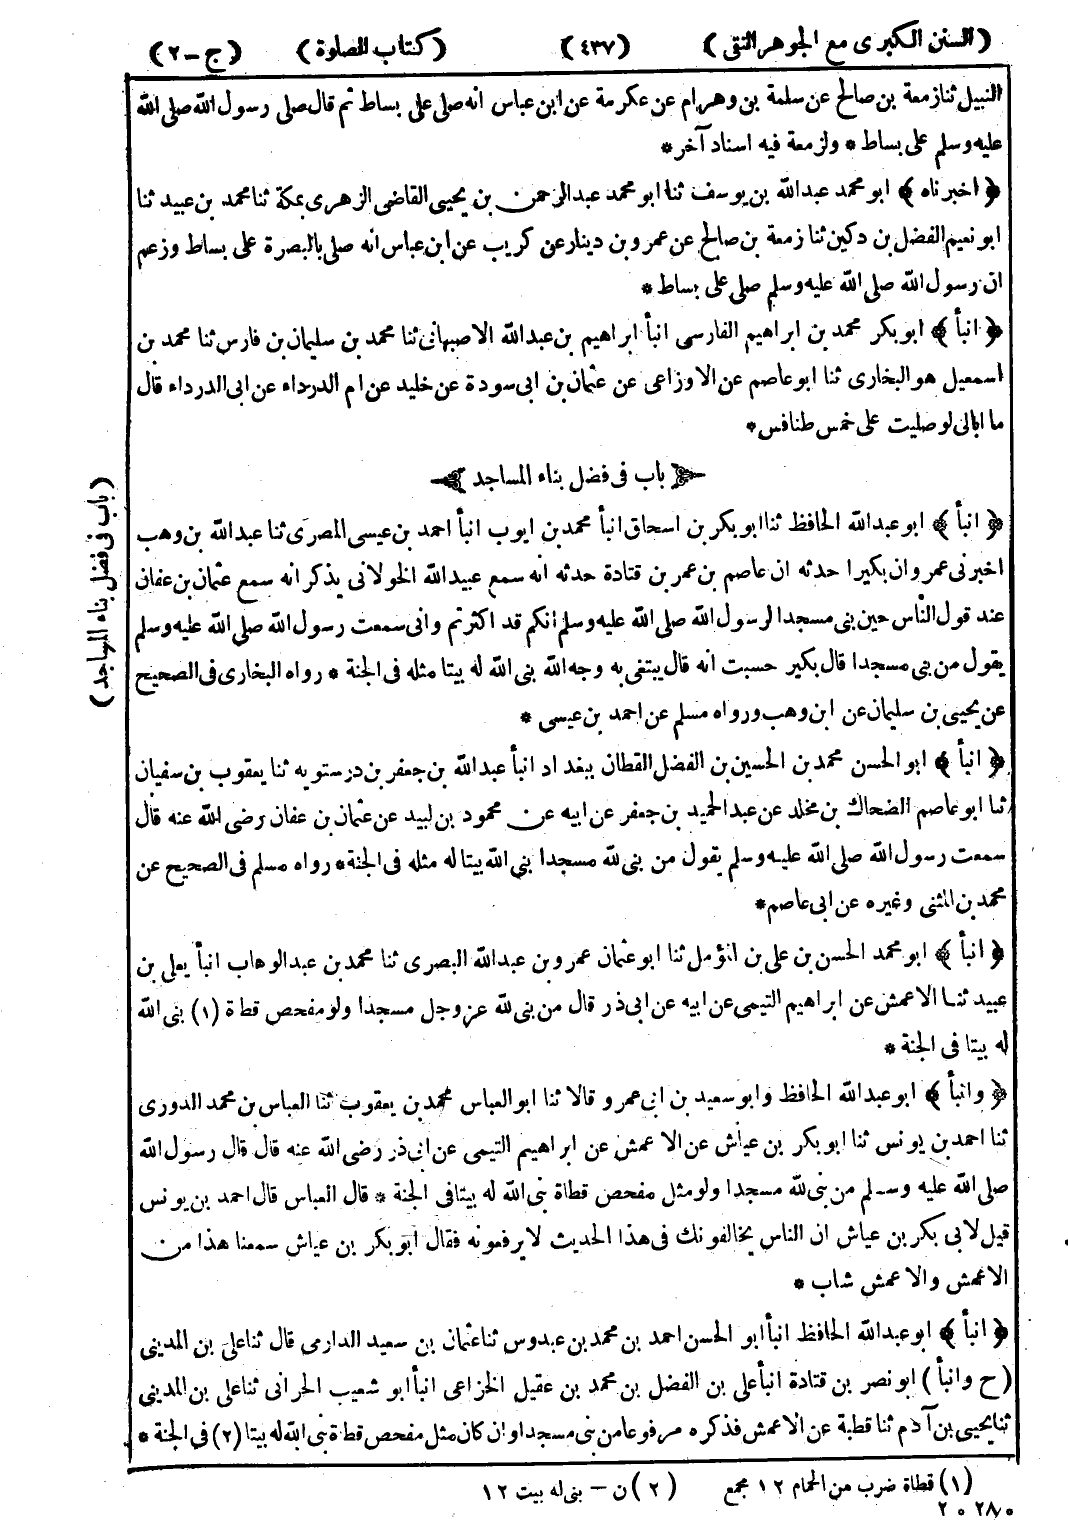 (السنن الكبرى مع الجوهر النقى) (٤٣٧) (كتاب الصلوة) (ج-٢)
النبيل ثنا زمعة بن صالح عن سلمة بن وهرام عن عكرمة عن ابن عباس انه صلى على بساط ثم قال صلى رسول الله صلى الله
عليه وسلم على بساط * ولزمعة فيه اسناد آخر *
﴿اخبرناه﴾ ابو محمد عبدالله بن يوسف ثنا ابو محمد عبدالرحمن بن يحيى القاضى الزهرى بمكة ثنا محمد بن عبيد ثنا
ابو نعيم الفضل بن دكين ثنا زمعة بن صالح عن عمرو بن دينار عن كريب عن ابن عباس انه صلى بالبصرة على بساط وزعم
ان رسول الله صلى الله عليه وسلم صلى على بساط *
﴿انبأ﴾ ابو بكر محمد بن ابراهيم الفارسى انبأ ابراهيم بن عبدالله الاصبهانى ثنا محمد بن سليمان بن فارس ثنا محمد بن
اسمعيل هو البخارى ثنا ابو عاصم عن الاوزاعى عن عثمان بن ابى سودة عن خليد عن ام الدرداء عن ابى الدرداء قال
ما ابالى لو صليت على خمس طنافس *
باب فى فضل بناء المساجد
(باب فى فضل بناء المساجد)
﴿انبأ﴾ ابو عبدالله الحافظ ثنا ابو بكر بن اسحاق انبأ محمد بن ايوب انبأ احمد بن عيسى المصرى ثنا عبدالله بن وهب
اخبرنى عمرو ان بكيرا حدثه ان عاصم بن عمر بن قتادة حدثه انه سمع عبيد الله الخولانى يذكر انه سمع عثمان بن عفان
عند قول الناس حين بنى مسجد الرسول الله صلى الله عليه وسلم انكم قد اكثرتم وانى سمعت رسول الله صلى الله عليه وسلم
يقول من بنى مسجدا قال بكير حسبت انه قال يبتغى به وجه الله بنى الله له بيتا مثله فى الجنة * رواه البخارى فى الصحيح
عن يحيى بن سليمان عن ابن وهب ورواه مسلم عن احمد بن عيسى *
﴿انبأ﴾ ابو الحسن محمد بن الحسين بن الفضل القطان ببغداد انبأ عبدالله بن جعفر بن درستويه ثنا يعقوب بن سفيان
ثنا ابو عاصم الضحاك بن مخلد عن عبد الحميد بن جعفر عن ابيه عن محمود بن لبيد عن عثمان بن عفان رضى الله عنه قال
سمعت رسول الله صلى الله عليه وسلم يقول من بنى لله مسجدا بنى الله بيتا له مثله فى الجنة * رواه مسلم فى الصحيح عن
محمد بن المثنى وغيره عن ابى عاصم *
﴿انبأ﴾ ابو محمد الحسن بن على بن المؤمل ثنا ابو عثمان عمرو بن عبدالله البصرى ثنا محمد بن عبدالوهاب انبأ يعلى بن
عبيد ثنا الاعمش عن ابراهيم التيمى عن ابيه عن ابى ذر قال من بنى لله عز وجل مسجدا ولو مفحص قطاة (١) بنى الله
له بيتا فى الجنة *
﴿وانبأ﴾ ابو عبدالله الحافظ وابو سعيد بن ابى عمرو قالا ثنا ابو العباس محمد بن يعقوب ثنا العباس بن محمد الدورى
ثنا احمد بن يونس ثنا ابو بكر بن عياش عن الاعمش عن ابراهيم التيمى عن ابى ذر رضى الله عنه قال قال رسول الله
صلى الله عليه وسلم من بنى لله مسجدا ولو مثل مفحص قطاة بنى الله له بيتا فى الجنة * قال العباس قال احمد بن يونس
قيل لابى بكر بن عياش ان الناس يخالفونك فى هذا الحديث لا يرفعونه فقال ابو بكر بن عياش سمعنا هذا من
الاعمش والاعمش شاب *
﴿انبأ﴾ ابو عبدالله الحافظ انبأ ابو الحسن احمد بن محمد بن عبدوس ثنا عثمان بن سعيد الدارمى قال ثنا على بن المدينى
(ح وانبأ) ابو نصر بن قتادة انبأ على بن الفضل بن محمد بن عقيل الخزاعى انبأ ابو شعيب الحرانى ثنا على بن المدينى
ثنا يحيى بن آدم ثنا قطبة عن الاعمش فذكره مرفوعا من بنى مسجدا وان كان مثل مفحص قطاة بنى الله له بيتا (٢) فى الجنة *
(١) قطاة ضرب من الحمام ١٢ مجمع (٢) ن - بنى له بيت ١٢